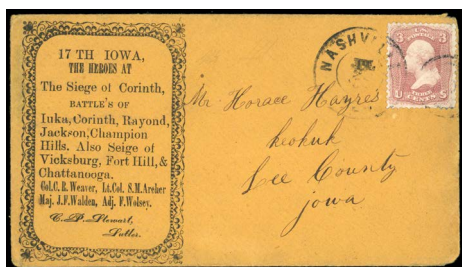 17 TH IOWA,
THE HEROES AT
The Siege of Corinth,
BATTLE'S OF
Iuka, Corinth, Rayond,
Jackson, Champion
Hills. Also Seige of
Vicksburg, Fort Hill, &
Chattanooga.
Col. C. R. Weaver, Lt. Col. S. M. Archer
Maj. J. F. Walden, Adj. F. Wolsey.
C. P. Stewart,
Sutler.
NASHVIL
3 U.S. POSTAGE 3
U THREE CENTS S
Mr Horace Hayres
keokuk
Lee County
jowa